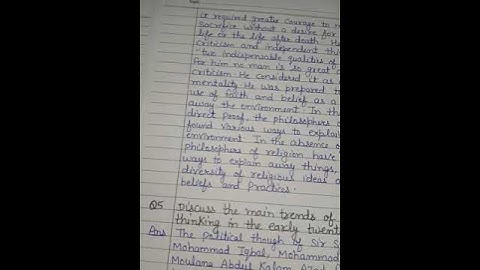 it required greater courage to m
sacrifice without a desire for
life or the life after death. He
criticism and independent thi
"two indispensable qualities of
for him no man is so great a
criticism. He considered it as a
mentality. He was prepared t
use of faith and belief as a
away the environment. In th
direct proof, the philosophers o
found various ways to explai
environment. In the absence o
philosophers of religion have
ways to explain away things,
diversity of religious ideas a
beliefs and practices.
Q5 Discuss the main trends of
thinking in the early twent
Ans The political though of Sir S
Mohammad Iqbal, Mohammad
Moulana Abdul Kalam Azad